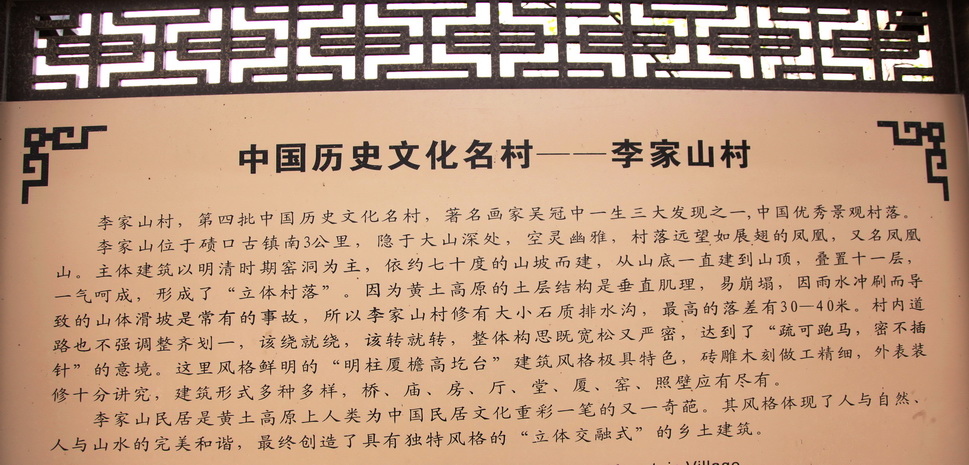 中国历史文化名村——李家山村
李家山村，第四批中国历史文化名村，著名画家吴冠中一生三大发现之一,中国优秀景观村落。
李家山位于碛口古镇南3公里，隐于大山深处，空灵幽雅，村落远望如展翅的凤凰，又名凤凰
山。主体建筑以明清时期窑洞为主，依约七十度的山坡而建，从山底一直建到山顶，叠置十一层，
一气呵成，形成了“立体村落”。因为黄土高原的土层结构是垂直肌理，易崩塌，因雨水冲刷而导
致的山体滑坡是常有的事故，所以李家山村修有大小石质排水沟，最高的落差有30—40米。村内道
路也不强调整齐划一，该绕就绕，该转就转，整体构思既宽松又严密，达到了“疏可跑马，密不插
针”的意境。这里风格鲜明的“明柱厦檐高圪台”建筑风格极具特色，砖雕木刻做工精细，外表装
修十分讲究，建筑形式多种多样，桥、庙、房、厅、堂、厦、窑、照壁应有尽有。
李家山民居是黄土高原上人类为中国民居文化重彩一笔的又一奇葩。其风格体现了人与自然、
人与山水的完美和谐，最终创造了具有独特风格的“立体交融式”的乡土建筑。
Village